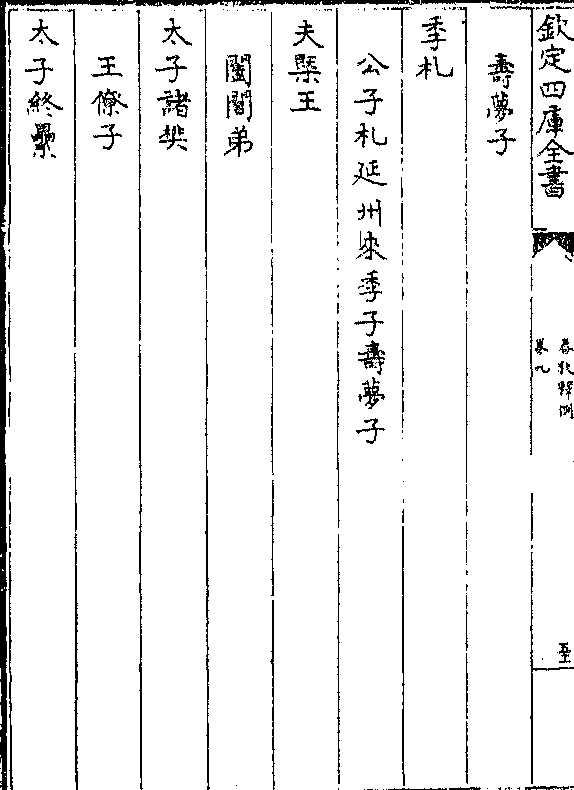 欽定四庫全書
春秋釋例
卷九
壽夢子
季札
公子札延州來季子壽夢子
夫槩王
闔閭弟
太子諸樊
王僚子
太子終纍